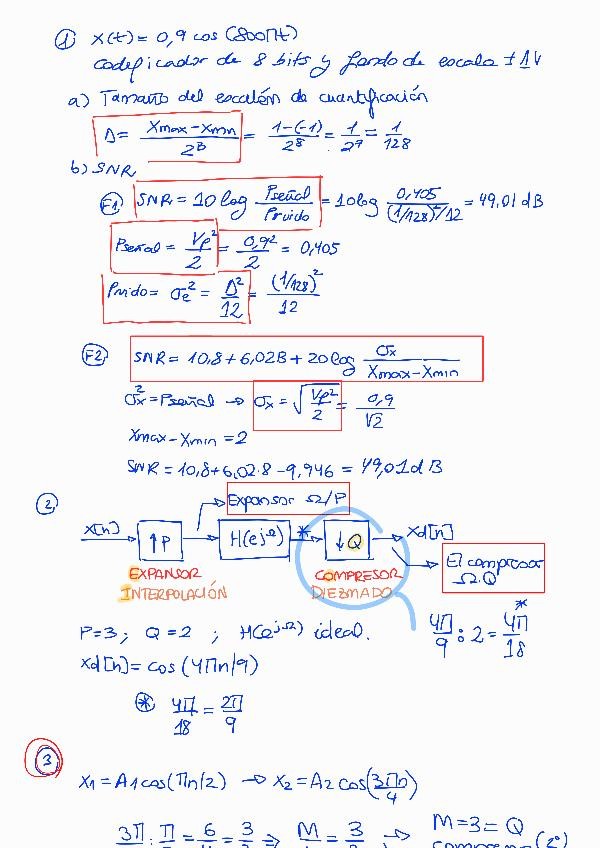 ① x(t) = 0,9 cos(800πt)
codificador de 8 bits y fondo de escala ±1V
a) Tamaño del escalón de cuantificación
Δ = (Xmax - Xmin)/2^B = (1-(-1))/2^8 = 1/2^7 = 1/128
b) SNR
F1) SNR = 10 log Pseñal/Pruido = 10 log 0,405/((1/128)²/12) = 49,01 dB
Pseñal = Vp²/2 = 0,9²/2 = 0,405
Pruido = σe² = Δ²/12 = (1/128)²/12
F2) SNR = 10,8 + 6,02B + 20 log σx/(Xmax - Xmin)
σx² = Pseñal → σx = √(Vp²/2) = 0,9/√2
Xmax - Xmin = 2
SNR = 10,8 + 6,02·8 - 9,946 = 49,01 dB
②
Expansor Ω/P
x[n] ↑P H(e^jΩ) * ↓Q xd[n]
EXPANSOR COMPRESOR
INTERPOLACIÓN DIEZMADO
El compresor
Ω·Q
P=3; Q=2; H(e^jΩ) ideal.
4π/9 : 2 = 4π/18 *
xd[n] = cos(4πn/9)
* 4π/18 = 2π/9
③
x1 = A1cos(πn/2) → x2 = A2cos(3πn/4)
M=3=Q
3π : π = 6 = 3 ⇒ M = 3 →